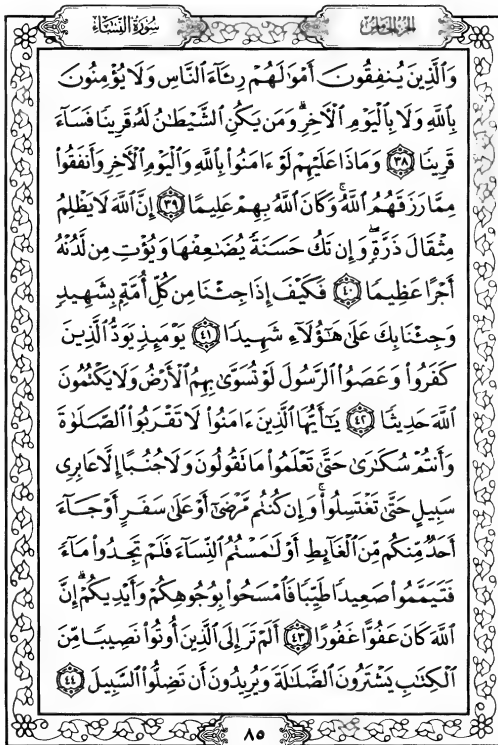 سُورَةُ النِّسَاءِ
الجُزْءُ الخَامِسُ
وَالَّذِينَ يُنفِقُونَ أَمْوَٰلَهُمْ رِئَآءَ النَّاسِ وَلَا يُؤْمِنُونَ
بِاللَّهِ وَلَا بِالْيَوْمِ الْآخِرِ ۗ وَمَن يَكُنِ الشَّيْطَٰنُ لَهُ قَرِينًا فَسَآءَ
قَرِينًا ﴿٣٨﴾ وَمَاذَا عَلَيْهِمْ لَوْ ءَامَنُوا بِاللَّهِ وَالْيَوْمِ الْآخِرِ وَأَنفَقُوا
مِمَّا رَزَقَهُمُ اللَّهُ ۚ وَكَانَ اللَّهُ بِهِمْ عَلِيمًا ﴿٣٩﴾ إِنَّ اللَّهَ لَا يَظْلِمُ
مِثْقَالَ ذَرَّةٍ ۖ وَإِن تَكُ حَسَنَةً يُضَٰعِفْهَا وَيُؤْتِ مِن لَّدُنْهُ
أَجْرًا عَظِيمًا ﴿٤٠﴾ فَكَيْفَ إِذَا جِئْنَا مِن كُلِّ أُمَّةٍ بِشَهِيدٍ
وَجِئْنَا بِكَ عَلَىٰ هَٰٓؤُلَآءِ شَهِيدًا ﴿٤١﴾ يَوْمَئِذٍ يَوَدُّ الَّذِينَ
كَفَرُوا وَعَصَوُا الرَّسُولَ لَوْ تُسَوَّىٰ بِهِمُ الْأَرْضُ وَلَا يَكْتُمُونَ
اللَّهَ حَدِيثًا ﴿٤٢﴾ يَٰٓأَيُّهَا الَّذِينَ ءَامَنُوا لَا تَقْرَبُوا الصَّلَوٰةَ
وَأَنتُمْ سُكَٰرَىٰ حَتَّىٰ تَعْلَمُوا مَا تَقُولُونَ وَلَا جُنُبًا إِلَّا عَابِرِى
سَبِيلٍ حَتَّىٰ تَغْتَسِلُوا ۚ وَإِن كُنتُم مَّرْضَىٰٓ أَوْ عَلَىٰ سَفَرٍ أَوْ جَآءَ
أَحَدٌ مِّنكُم مِّنَ الْغَآئِطِ أَوْ لَٰمَسْتُمُ النِّسَآءَ فَلَمْ تَجِدُوا مَآءً
فَتَيَمَّمُوا صَعِيدًا طَيِّبًا فَامْسَحُوا بِوُجُوهِكُمْ وَأَيْدِيكُمْ ۗ إِنَّ
اللَّهَ كَانَ عَفُوًّا غَفُورًا ﴿٤٣﴾ أَلَمْ تَرَ إِلَى الَّذِينَ أُوتُوا نَصِيبًا مِّنَ
الْكِتَٰبِ يَشْتَرُونَ الضَّلَٰلَةَ وَيُرِيدُونَ أَن تَضِلُّوا السَّبِيلَ ﴿٤٤﴾
٨٥